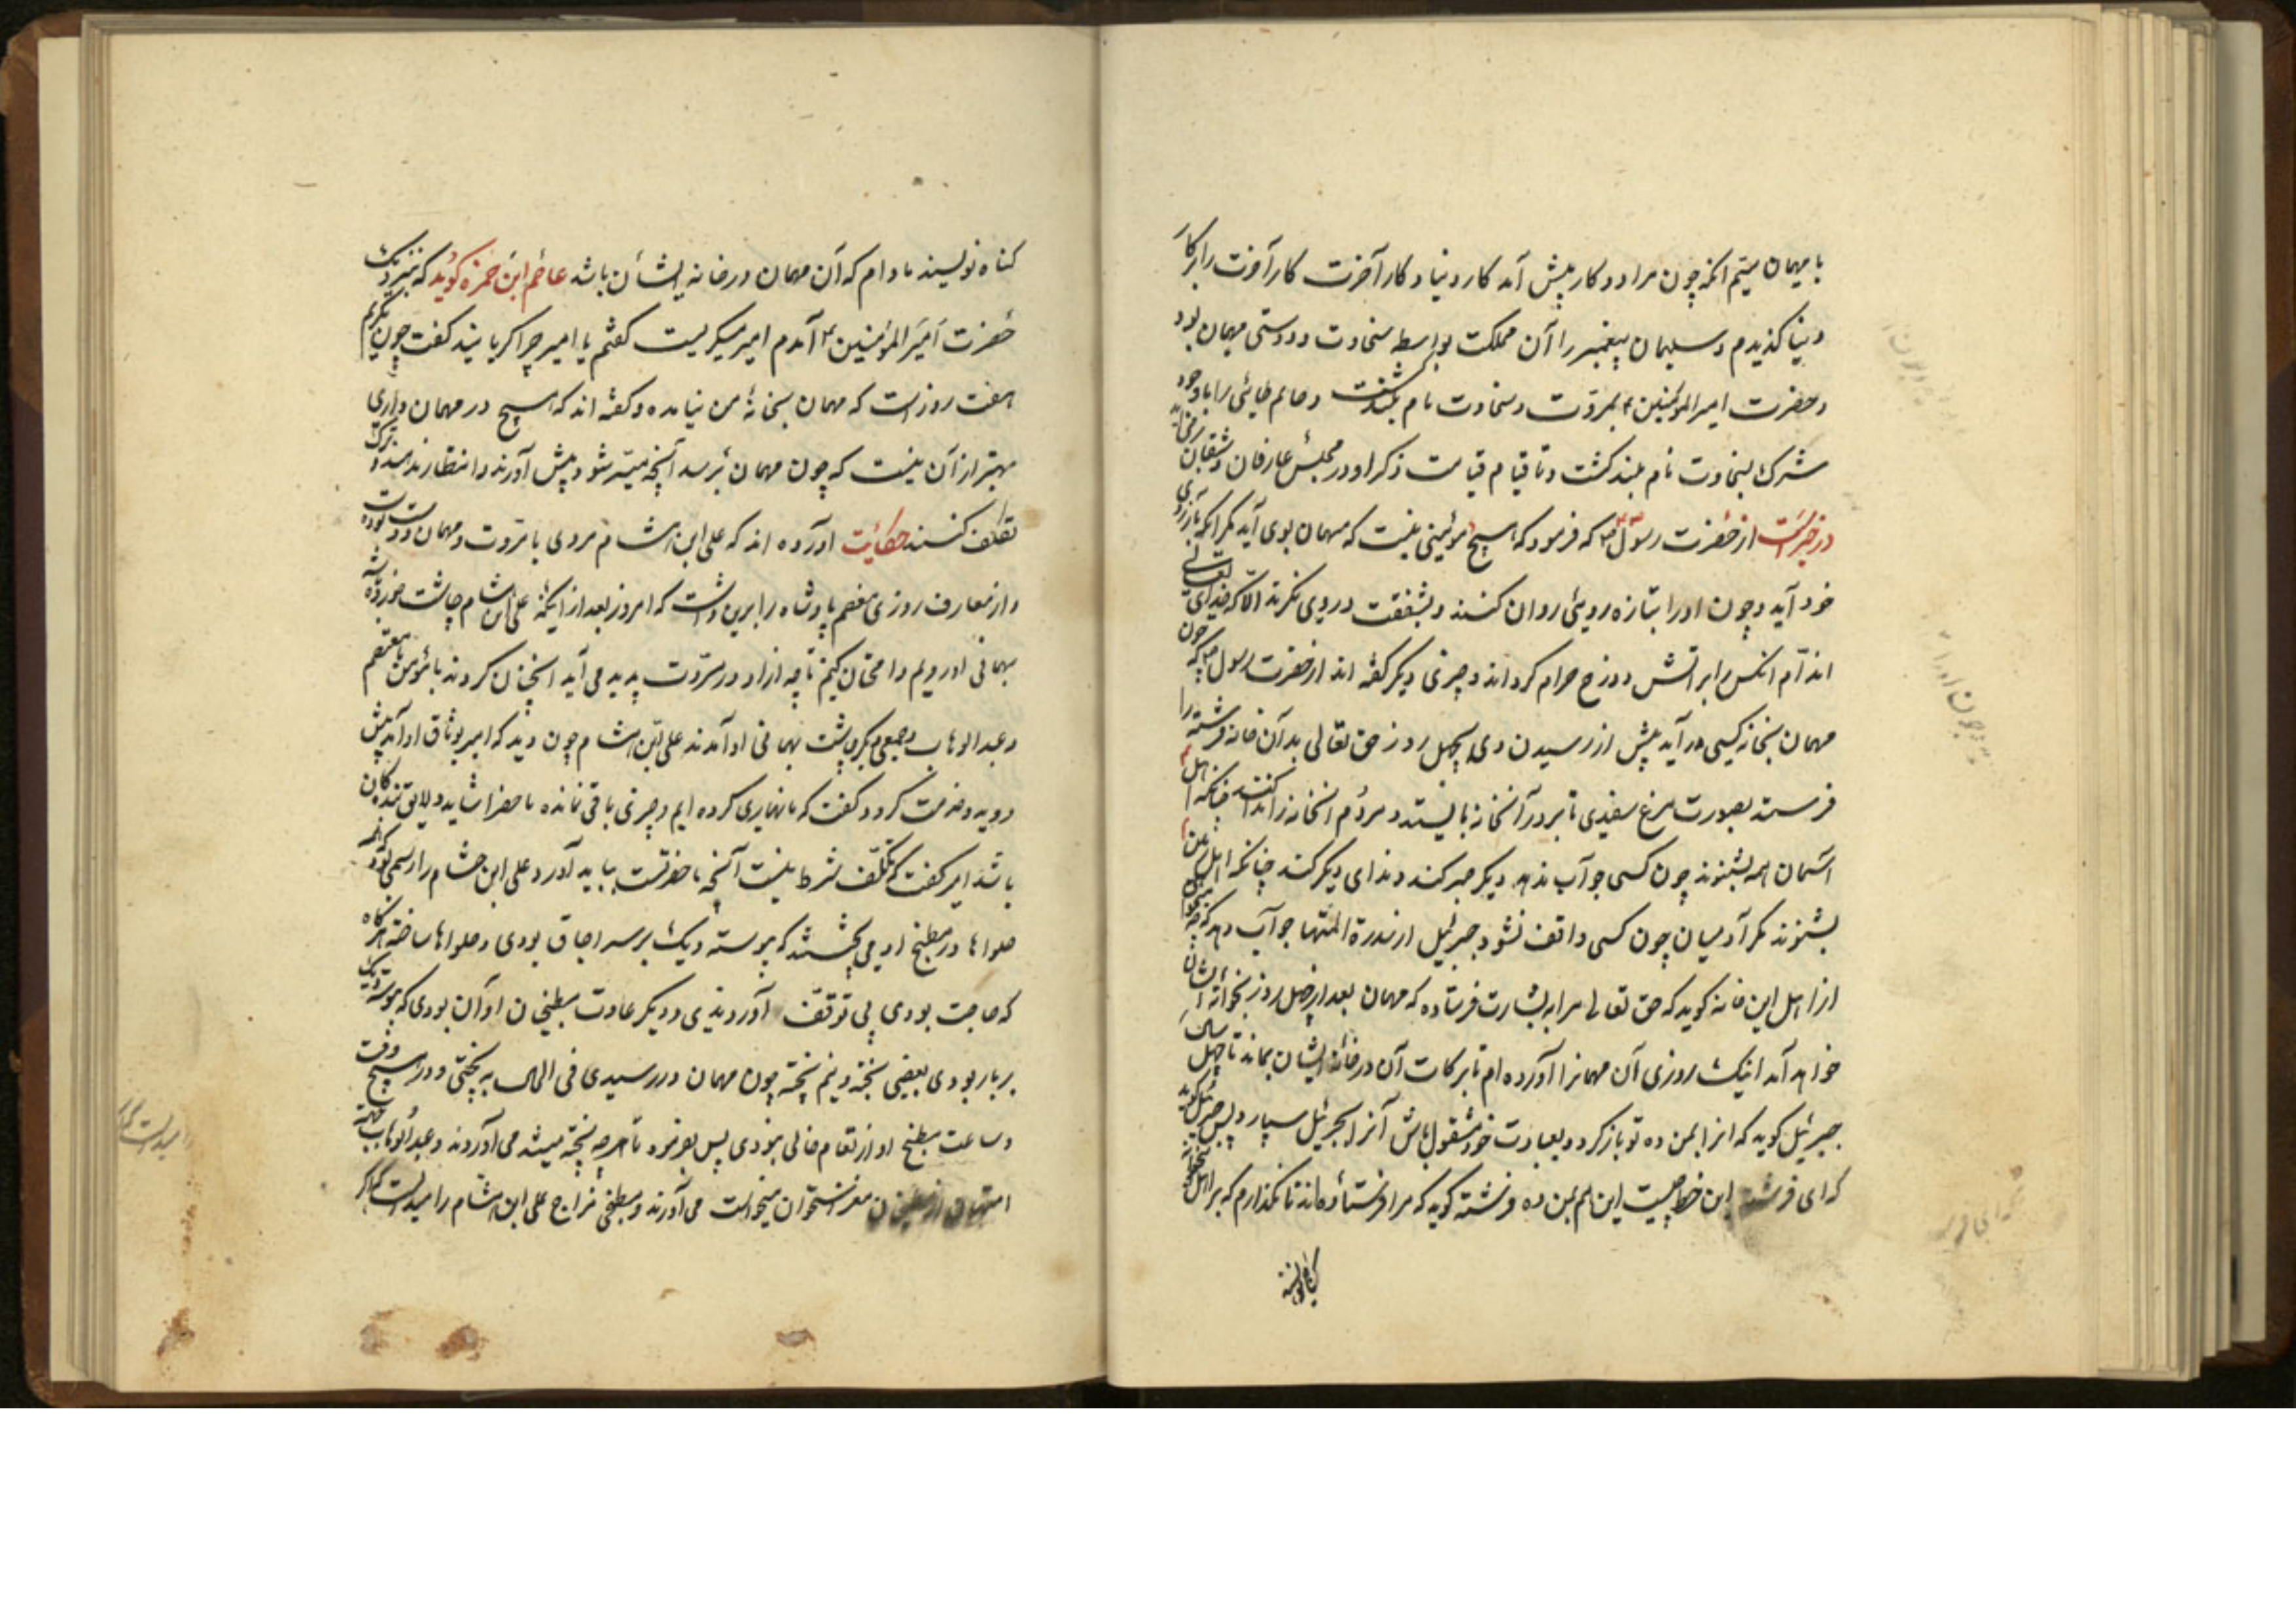 با مهمان سیّم انکه چون مرا دو کار پیش آمد کار دنیا و کار آخرت کار آخرت را بر کار
دنیا گذیدم و سلیمان پیغمبر را آن مملکت بواسطه سخاوت و دوستی مهمان بود
و حضرت امیر المؤمنین بمروّت و سخاوت نام بلند گشت و حاتم طایی را با وجود
شرک بسخاوت نام بلند گشت و تا قیام قیامت ذکر او در مجلس عارفان و
در خبر است از حضرت رسول که فرمود که هیچ مؤمنی نیست که مهمان بوی آید مگر انکه با روزی
خود آید و چون او را بتازه رویی روان کنند و بشفقت در وی نگرند الّا که خدای تعالی
اندام انکس را بر اتش دوزخ حرام گرداند و خبری دیگر گفته اند از حضرت رسول که چون
مهمان بخانه کسی در آید پیش از رسیدن وی بچهل روز حق تعالی بدان خانه فرشته را
فرستد بصورت مرغ سفیدی تا بر در آنخانه بایستد و مردم انخانه را چنانکه اهل
آسمان همه بشنوند چون کسی جواب ندهد دیگر صبر کند و ندای دیگر کند چنانکه اهل زمین
بشنوند مگر آدمیان چون کسی واقف نشود جبرئیل از سدرة المنتها جواب دهد که
از اهل این خانه گوید که حق تعالی مرا به بشارت فرستاده که مهمان بعد از چهل روز بخوانه ایشان
خواهد آمد اینک روزی آن مهمانرا آورده ام تا برکات آن در خانه ایشان بماند تا چهل سال
جبرئیل گوید که انرا بمن ده تو بازگرد و بعبادت خود مشغول باش آنرا بجبرئیل سپارد پس جبرئیل گوید
که ای فرشته این خط چیست این هم بمن ده فرشته گوید که مرا فرستاده اند تا نگذارم که بر اهل
گناه نویسند مادام که آن مهمان در خانه ایشان باشد عاصم ابن حمزه گوید که بنزدیک
حضرت امیر المؤمنین آمدم امیر میگریست گفتم یا امیر چرا گریانید گفت چون نگریم
هفت روز است که مهمان بخانهٔ من نیامده و گفته اند که هیچ در مهمان داری
بهتر از آن نیست که چون مهمان برسد آنچه میسّر شود پیش آورند و انتظار ندهند و ترک
تکلف کنند حکایت آورده اند که علی ابن هشام مردی با مروّت و مهمان دوست بوده
و از معارف روزی معتصم پادشاه را برین داشت که امروز بعد از اینکه علی ابن هشام چاشت خورده باشد
بهمانی او رویم و امتحان کنیم تا چه از او در مروّت پدید می آید اسخن کردند با مؤمن معتصم
و عبد الوهاب و جمعی بهمانی او آمدند علی ابن هشام چون دید که امیر بوثاق او آمد پیش
دوید و خدمت کرد و گفت که ما نهاری کرده ایم و چیزی باقی نمانده ماحضر شاید و لایق
باشد امیر گفت که تکلّف شرط نیست آنچه ماحضرست بباید آورد و علی ابن هشام را رسمی بود که
حلواها در مطبخ او می کشیدند که پیوسته دیک بر سر اجاق بودی و حلواها ساخته هرگاه
که حاجت بودی بی توقف آوردندی و دیگر عادت مطبخیان او آن بودی که پیوسته دیک
بربار بودی بعضی پخته و نیم پخته چون مهمان در رسیدی فی الحال به پختی و در هیچ وقت
و ساعت مطبخ او از طعام خالی نبودی پس بفرمود تا هرچه پخته میشد می آوردند و عبد الوهاب بجهته
امتهان از مطبخیان مغز استخوان میخواست می آورند و مطبخی مزاج علی ابن هشام را میدانست که اگر